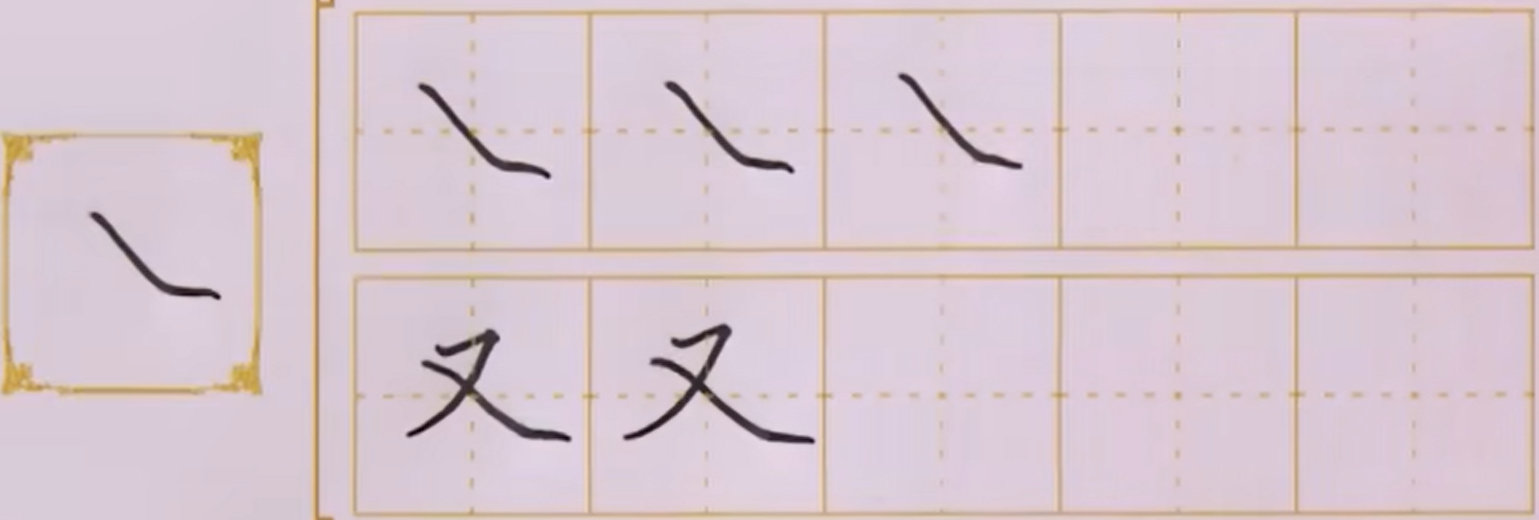 ㇏ ㇏ ㇏ ㇏
又 又